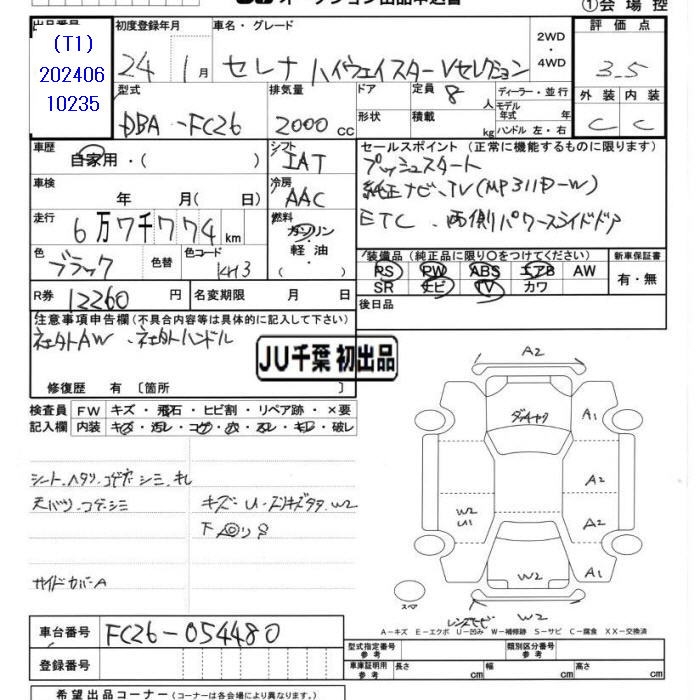 ①会場控
(T1)
202406
10235
初度登録年月
24年 1月
車名・グレード
セレナ ハイウェイスター Vセレクション
2WD・4WD
評価点
3.5
外装 内装
C C
型式
DBA-FC26
排気量
2000 cc
ドア
形状
定員 8 人
積載 kg
ディーラー・並行
モデル年式 年
ハンドル 左・右
車歴
自家用・( )
シフト
IAT
セールスポイント (正常に機能するものに限ります)
プッシュスタート
純正ナビ・TV(MP311D-W)
ETC、両側パワースライドドア
車検
年 月( 日)
冷房
AAC
走行
6万7千774km
燃料
ガソリン・軽油・( )
色
ブラック
色替
色コード
KH3
装備品 (純正品に限り○をつけてください)
PS PW ABS エアB AW
SR ナビ TV カワ
新車保証書
有・無
R券 12260円
名変期限 月 日
後日品
注意事項申告欄(不具合内容等は具体的に記入して下さい)
社外AW、社外ハンドル
JU千葉 初出品
修復歴 有 〔箇所
検査員記入欄
FW キズ・飛石・ヒビ割・リペア跡・×要
内装 キズ・汚レ・コゲ・穴・スレ・キレ・破レ
シート、ヘタリ、コゲ穴、シミ、キレ
天バリ、コゲ、シミ
サイドカバーA
A2
ダッシュ
A1
A2
A2
A1
W2
U1
W2
W2
スペア
A-キズ E-エクボ U-凹み W-補修跡 S-サビ C-腐食 XX-交換済
車台番号 FC26-054480
登録番号
型式指定番号 参考
類別区分番号 参考
車庫証明用 参考
長さ cm 幅 cm 高さ cm
希望出品コーナー (コーナーは各会場により異なります。)